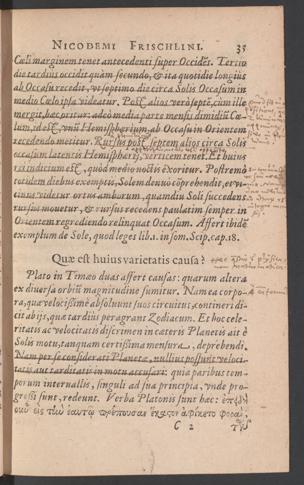 NICODEMI FRISCHLINI. 35
Cœli marginem tenet antecedenti super Occidēt. Tertio
die tardius occidit quàm secundo, & ita quotidie longius
ab Occasu recedit, vt septimo die circa Solis Occasum in
medio Cœlo ipsa videatur. Post alios verò septē, cùm ille
mergit, hæc oritur: adeò media parte mensis dimidiū Cœ-
lum, id est, vnū Hemisphærium, ab Occasu in Orientem
recedendo metitur. Rursus post septem alios circa Solis
occasum latentis Hemispherij, verticem tenet. Et huius
rei indicium est, quòd medio noctis exoritur. Postremò
totidem diebus exemptis, Solem denuò cōprehendit, et vi-
cinus videtur ortus amborum, quamdiu Soli succedens
rursus mouetur, & rursus recedens paulatim semper in
Orientem regrediendo relinquat Occasum. Affert ibidē
exemplum de Sole, quod leges lib.1. in som. Scip. cap. 18.
Quæ est huius varietatis causa?
Plato in Timæo duas affert causas: quarum altera
ex diuersa orbiū magnitudine sumitur. Nam ea corpo-
ra, quæ velocißimè absoluunt suos circuitus, contineri di-
cit ab ijs, quæ tardius peragrant Zodiacum. Et hoc cele-
ritatis ac velocitatis discrimen in cæteris Planetis ait è
Solis motu, tanquam certißima mensura, deprehendi.
Nam per se considerati Planetæ, nullius possunt veloci-
tatis aut tarditatis in motu accusari: quia paribus tem-
porum interuallis, singuli ad sua principia, vnde pro-
greßi sunt, redeunt. Verba Platonis sunt hæc: ἐπειδὴ
οὖν εἰς τὴν ἑαυτῷ πρέπουσαν ἕκαστον ἀφίκετο φορὰν,
C 2 τῆς